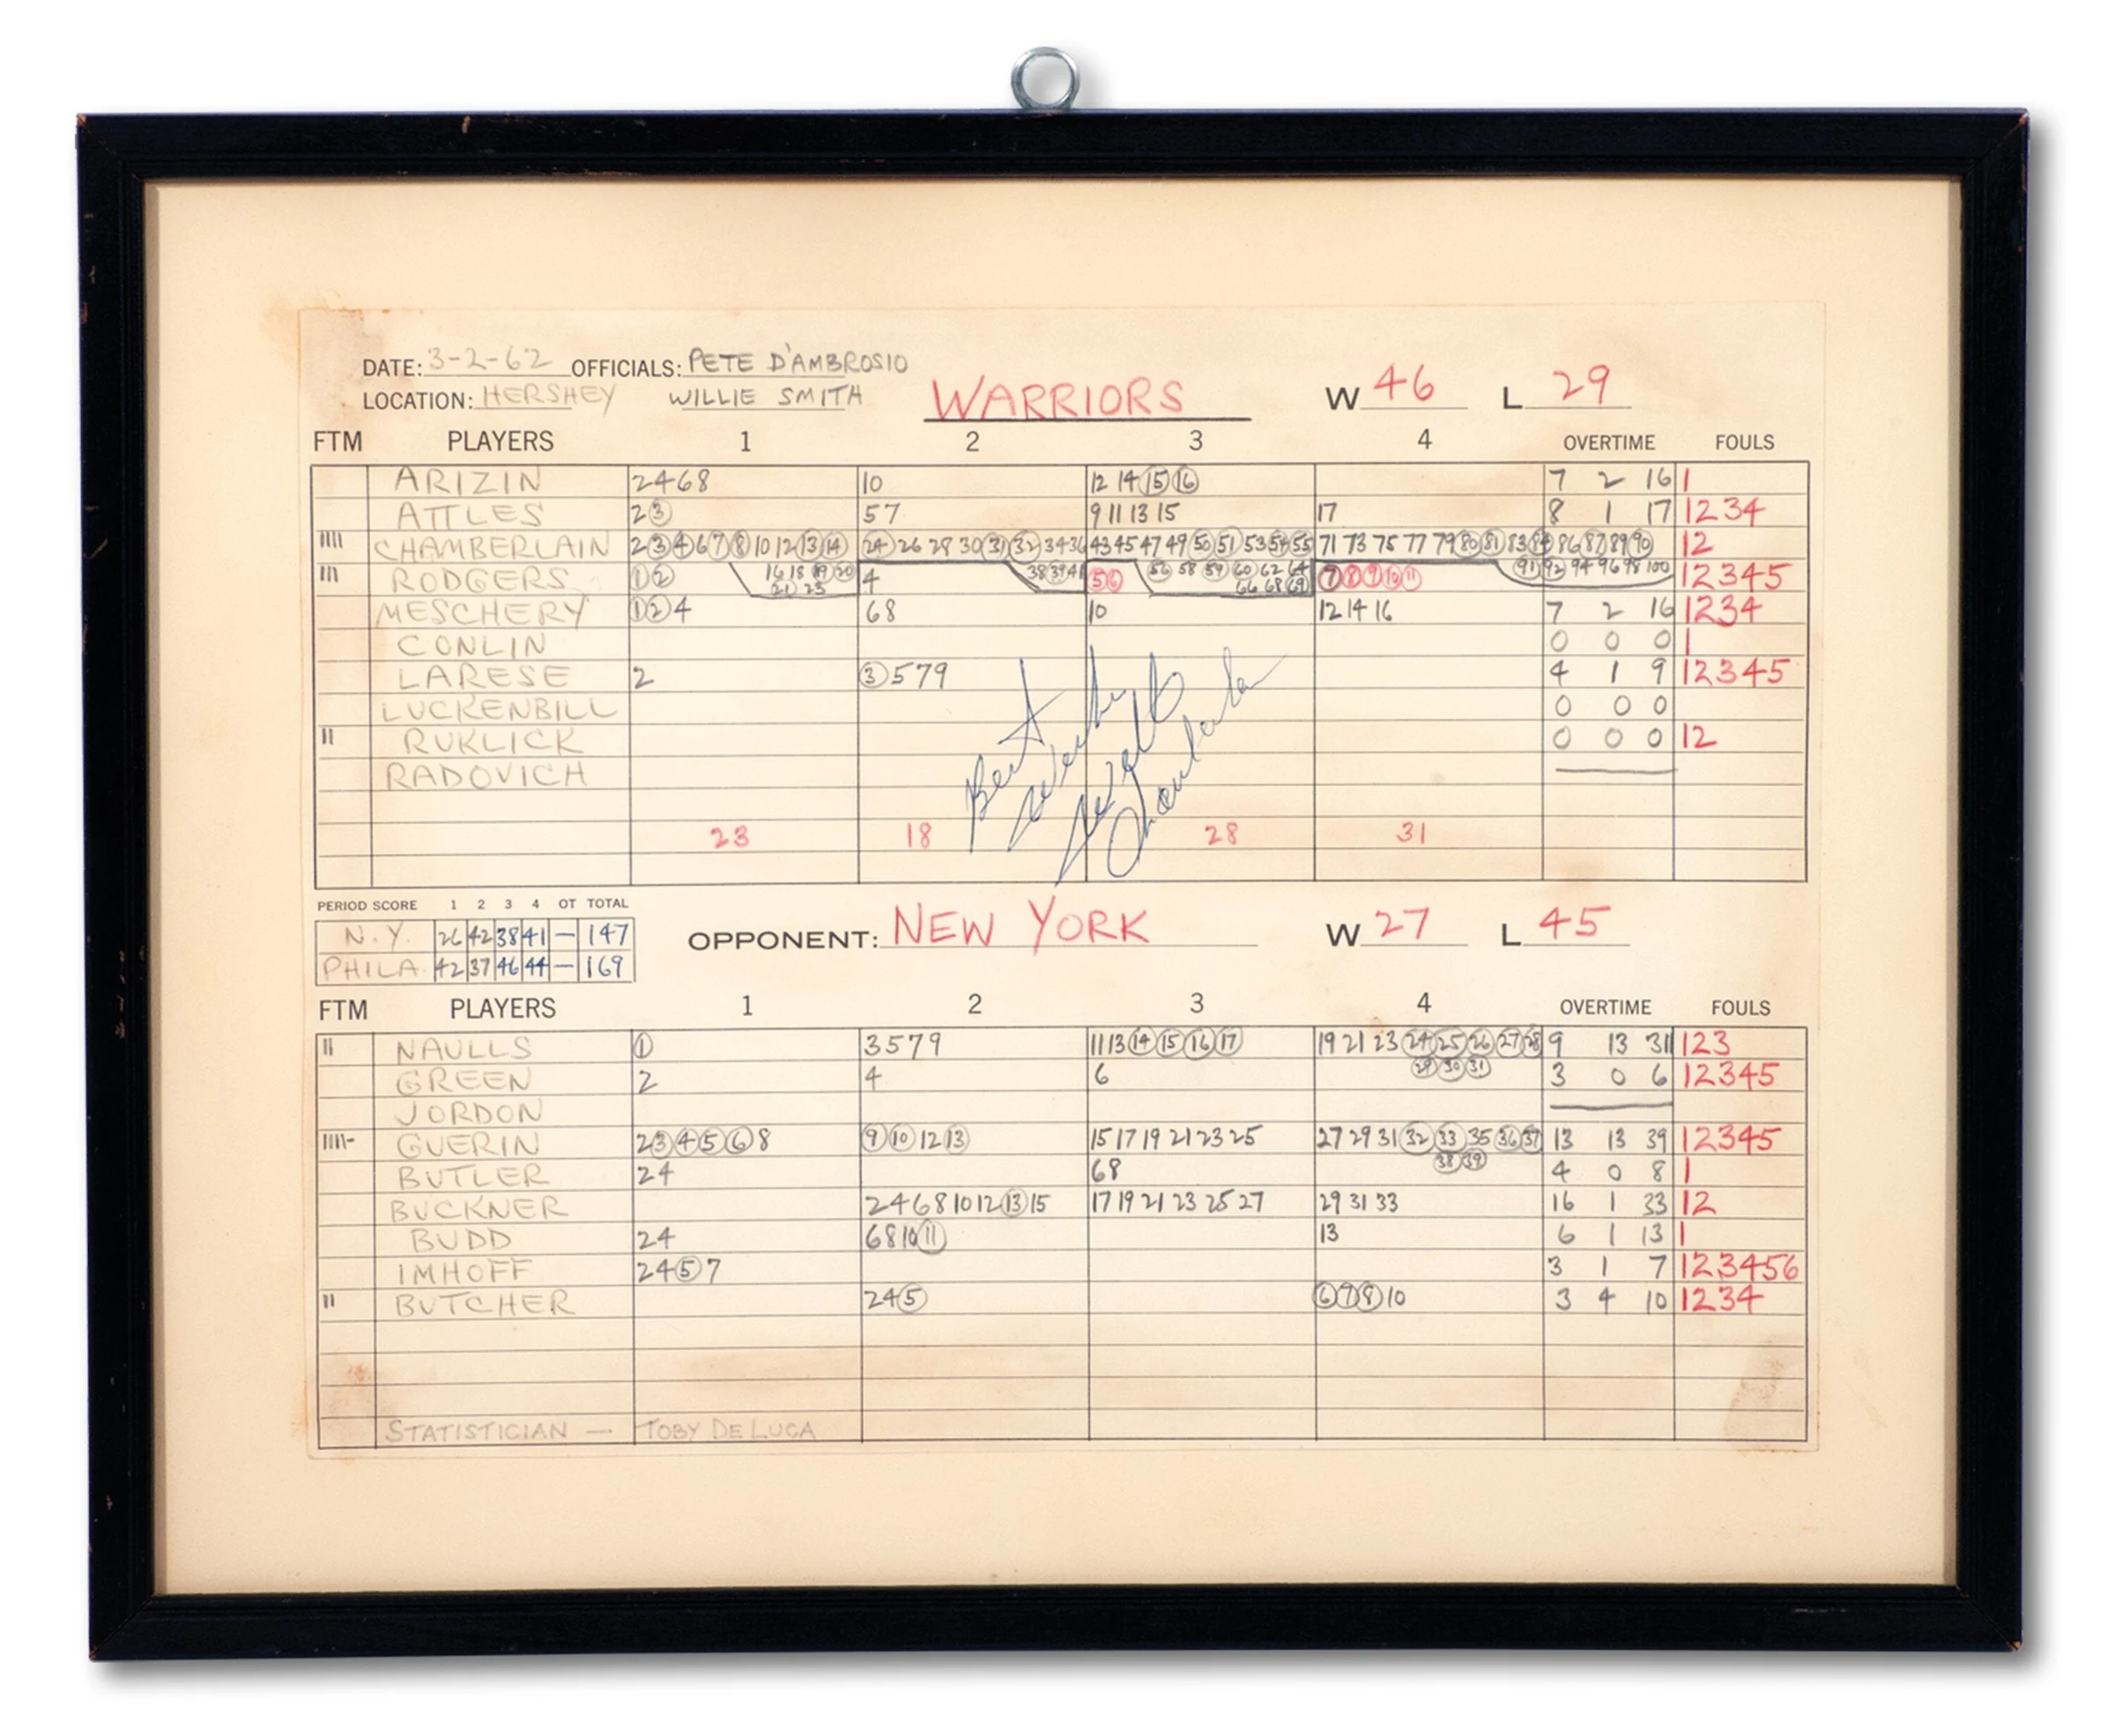 DATE: 3-2-62 OFFICIALS: PETE D'AMBROSIO
LOCATION: HERSHEY WILLIE SMITH WARRIORS W 46 L 29
FTM PLAYERS 1 2 3 4 OVERTIME FOULS
ARIZIN 2 4 6 8 10 12 14 15 16 7 2 16 1
ATTLES 2 3 5 7 9 11 13 15 17 8 1 17 1 2 3 4
IIII CHAMBERLAIN 2 3 4 6 7 8 10 12 13 14 24 26 28 30 31 32 34 36 43 45 47 49 50 51 53 54 55 71 73 75 77 79 80 81 83 84 86 87 89 90 1 2
III RODGERS 1 2 16 18 19 20 4 38 39 41 5 6 56 58 59 60 62 64 7 8 9 10 11 91 92 94 96 98 100 1 2 3 4 5
21 23 66 68 69
MESCHERY 1 2 4 6 8 10 12 14 16 7 2 16 1 2 3 4
CONLIN 0 0 0 1
LARESE 2 3 5 7 9 4 1 9 1 2 3 4 5
LUCKENBILL 0 0 0
II RUKLICK 0 0 0 1 2
RADOVICH
Best Wishes Wilt Chamberlain
23 18 28 31
PERIOD SCORE 1 2 3 4 OT TOTAL
N.Y. 26 42 38 41 — 147
PHILA. 42 37 46 44 — 169
OPPONENT: NEW YORK W 27 L 45
FTM PLAYERS 1 2 3 4 OVERTIME FOULS
II NAULLS 1 3 5 7 9 11 13 14 15 16 17 19 21 23 24 25 26 27 28 9 13 31 1 2 3
29 30 31
GREEN 2 4 6 3 0 6 1 2 3 4 5
JORDON
IIII- GUERIN 2 3 4 5 6 8 9 10 12 13 15 17 19 21 23 25 27 29 31 32 33 35 36 37 13 13 39 1 2 3 4 5
38 39
BUTLER 2 4 6 8 4 0 8 1
BUCKNER 2 4 6 8 10 12 13 15 17 19 21 23 25 27 29 31 33 16 1 33 1 2
BUDD 2 4 6 8 10 11 13 6 1 13 1
IMHOFF 2 4 5 7 3 1 7 1 2 3 4 5 6
II BUTCHER 2 4 5 6 7 8 10 3 4 10 1 2 3 4
STATISTICIAN — TOBY DE LUCA